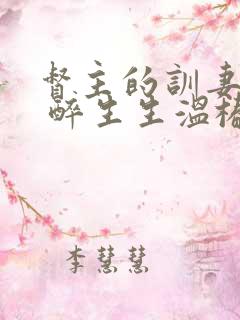 督主的訓妻
醉生生溫
李慧慧